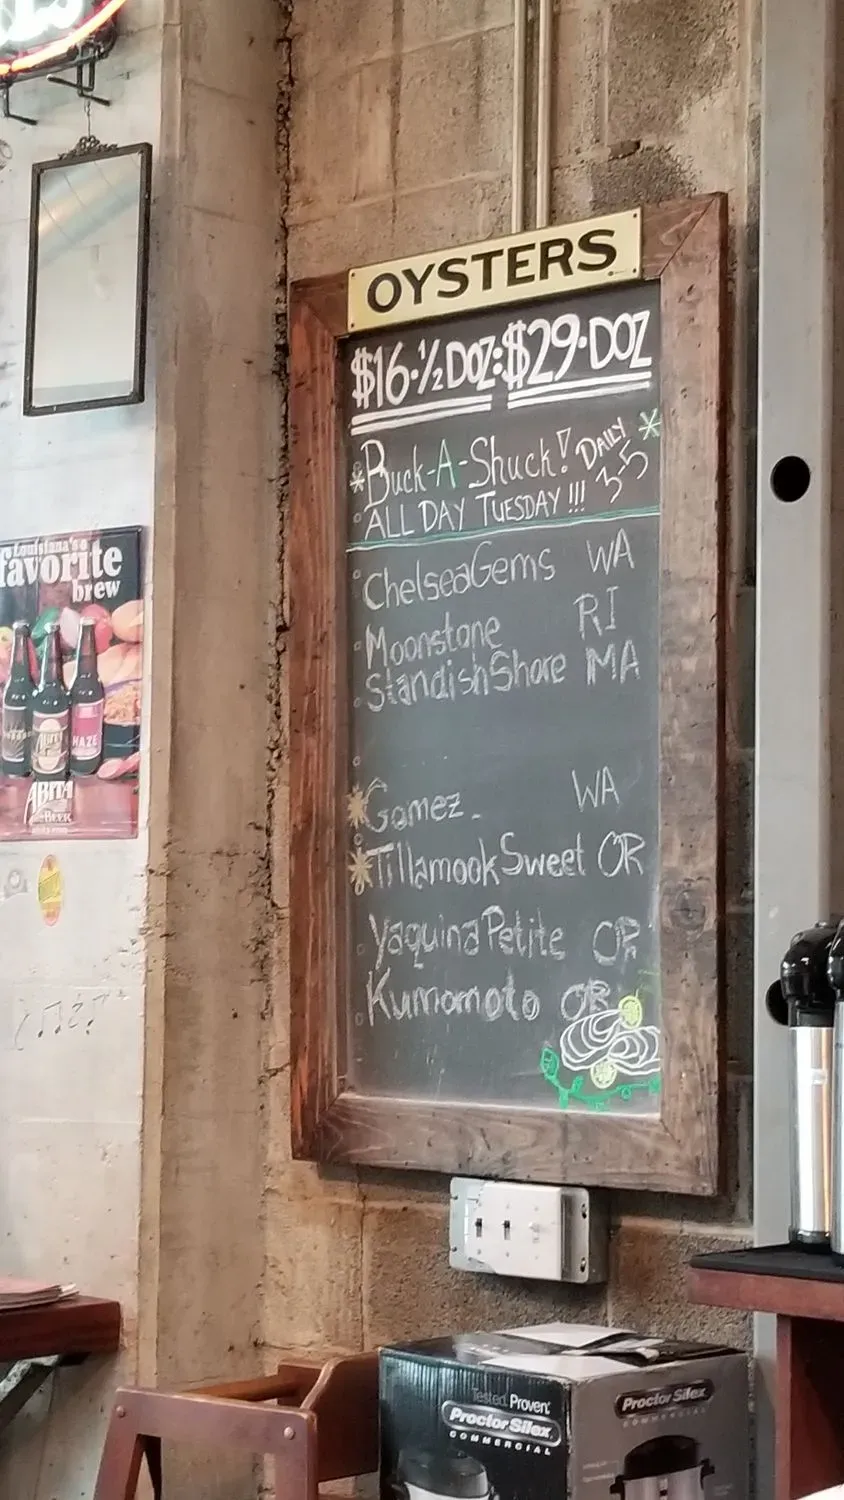 OYSTERS
$16·½DOZ:$29·DOZ
*Buck-A-Shuck! DAILY *
ALL DAY TUESDAY!!! 3-5
ChelseaGems WA
Moonstone RI
StandishShore MA
Gomez WA
Tillamook Sweet OR
Yaquina Petite OR
Kumomoto OR
Louisiana's
favorite
brew
HAZE
ABITA
BEER
Tested. Proven.
Proctor Silex
COMMERCIAL
Proctor Silex
COMMERCIAL